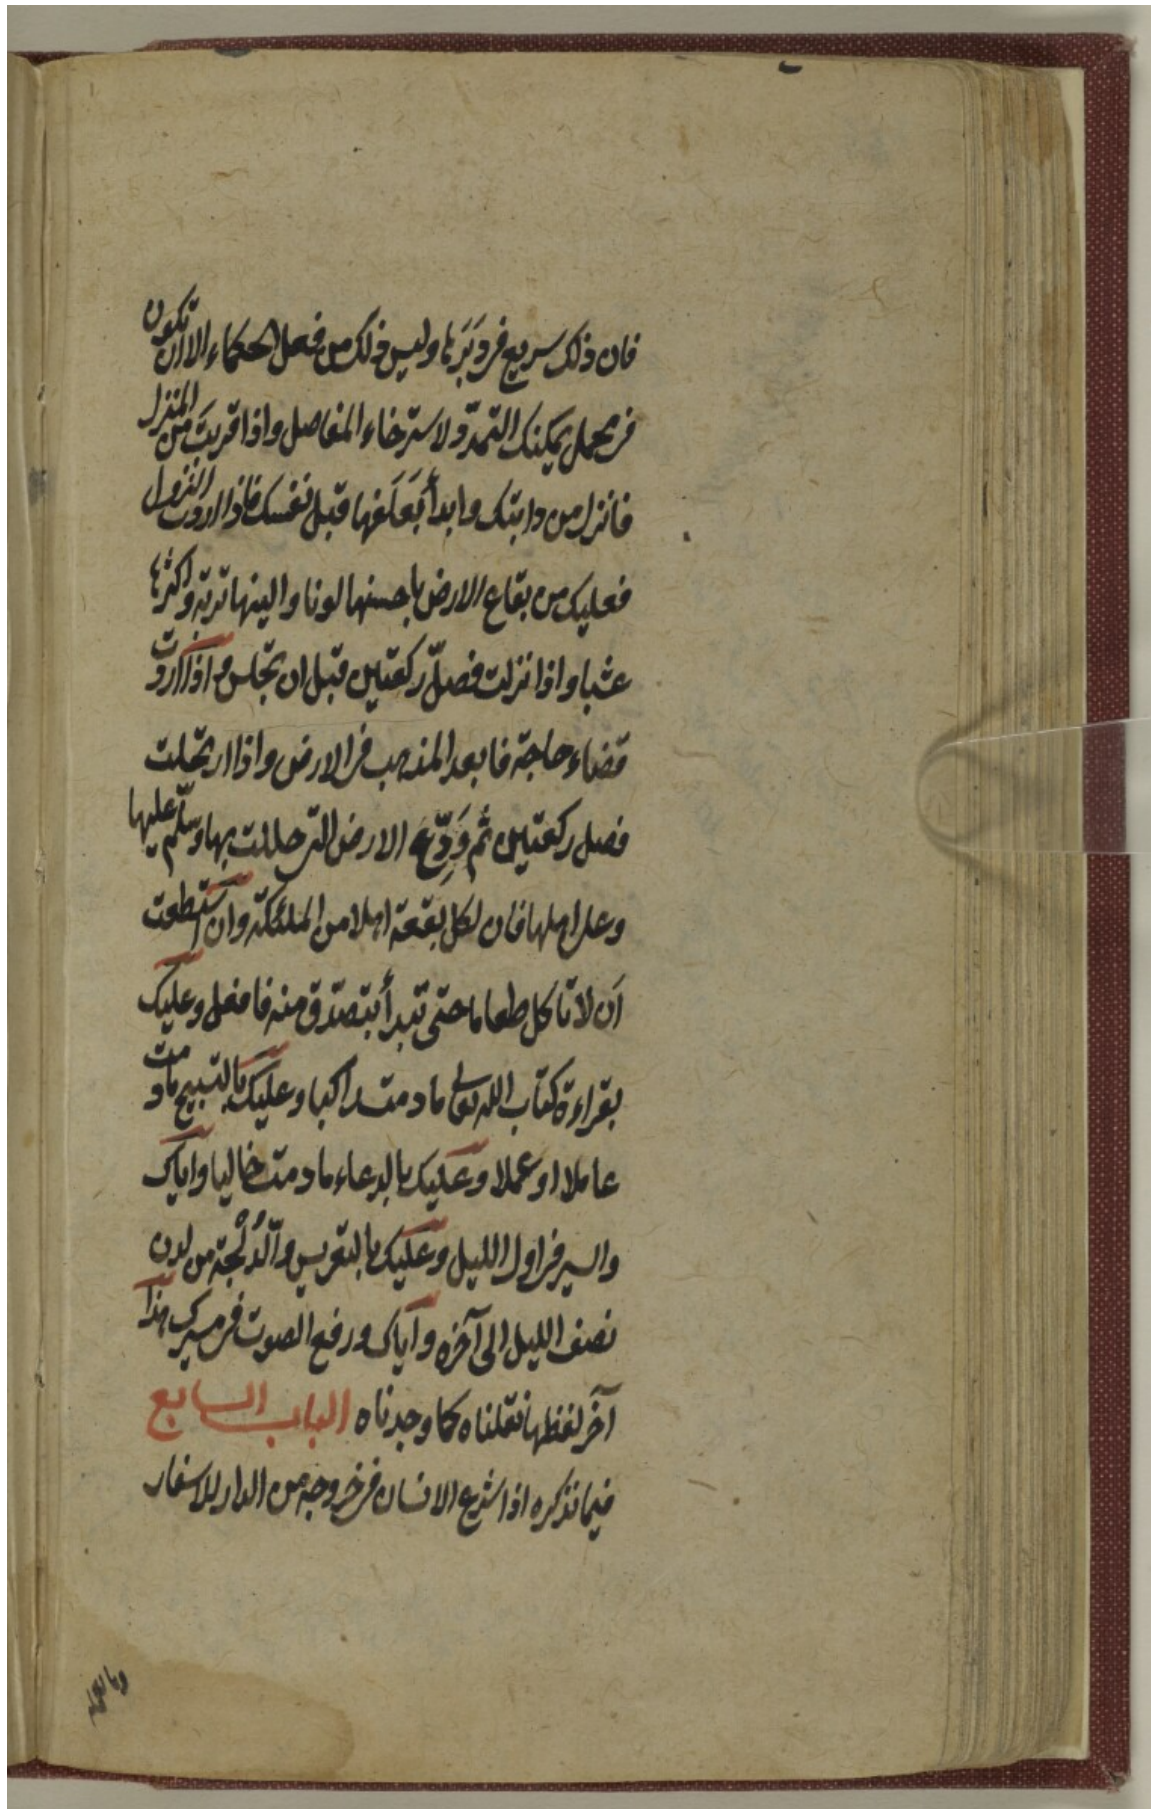 فان ذلك سريع فى دَبَرَها وليس ذلك من فعل الحكماء الا ان تكون
فى محمل يمكنك التمدّد لاسترخاء المفاصل واذا قربتَ من المنزل
فانزل من دابتك وابدأ بَعَلَفها قبل نفسك فاذا اردت النزول
فعليك من بقاع الارض باحسنها لونا والينها تربة واكثرها
عشبا واذا نزلت فصلّ ركعتين قبل ان تجلس واذا اردت
قضاء حاجة فابعد المذهب فى الارض واذا ارتحلت
فصل ركعتين ثم وَدِّع الارض التى حللت بها وسلّم عليها
وعلى اهلها فان لكل بقعة اهلا من الملئكة وان استطعت
اَن لا تاكل طعاما حتى تبدأ بتصدّق منه فافعل وعليك
بقراءة كتاب الله تعالى ما دمت راكبا وعليك بالتسبيح ما دمت
عاملا او عملا وعليك بالدعاء ما دمت خاليا واياك
والسير فى اول الليل وعليك بالتعريس والدُلْجة من لدن
نصف الليل الى آخره واياك ورفع الصوت فى مسيرك هذا
آخر لفظها نقلناه كما وجدناه الباب السابع
فيما نذكره اذا شرع الانسان فى خروجه من الدار للاسفار